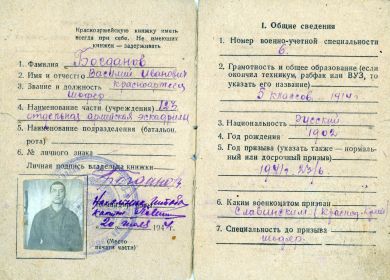 Красноармейскую книжку иметь
всегда при себе. Не имеющих
книжек — задерживать
1. Фамилия Богданов
2. Имя и отчество Василий Иванович
3. Звание и должность красноармеец
шофер
4. Наименование части (учреждения) 123
отдельная армейская эскадрилья
5. Наименование подразделения (батальон,
рота)
6. № личного знака
Личная подпись владельца книжки
Богданов
Начальник штаба
капитан
20 июля 1944
(Место
печати части)
I. Общие сведения
1. Номер военно-учетной специальности
6.
2. Грамотность и общее образование (если
окончил техникум, рабфак или ВУЗ, то
указать его название)
5 классов 1914 г.
3. Национальность русский
4. Год рождения 1902
5. Год призыва (указать также — нормаль-
ный или досрочный призыв)
1941 г. 23/6
6. Каким военкоматом призван
Славянским (Краснод. край)
7. Специальность до призыва
шофер